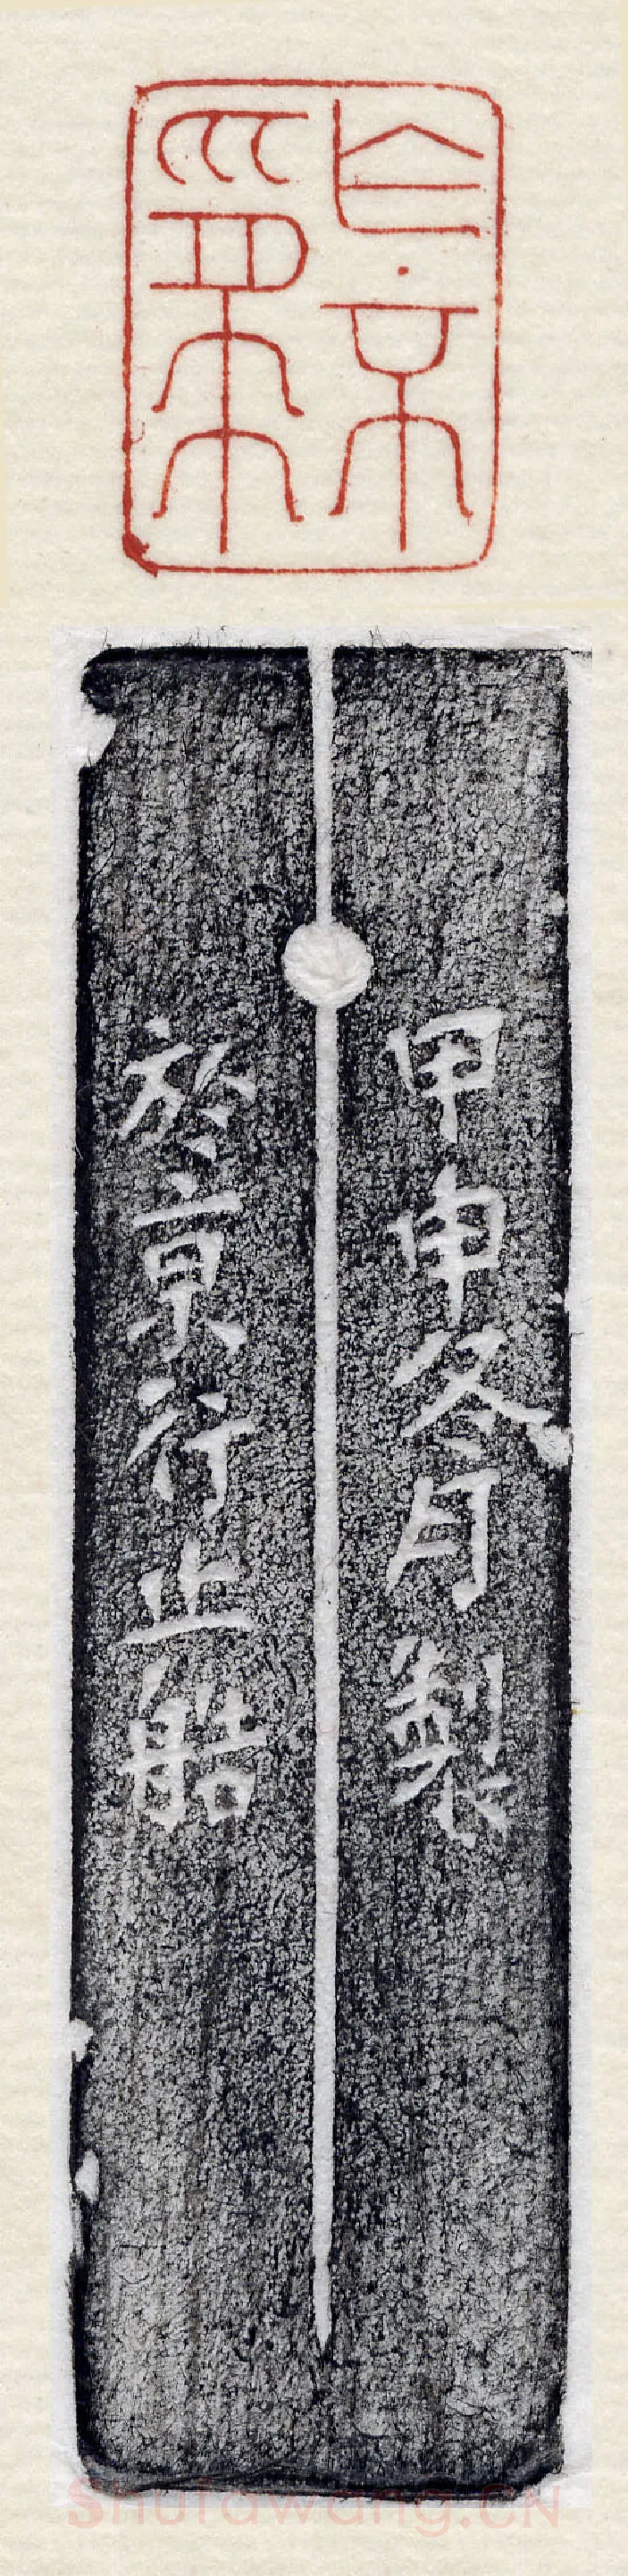 甲申冬月製
於京行止船
Shufawang.CN